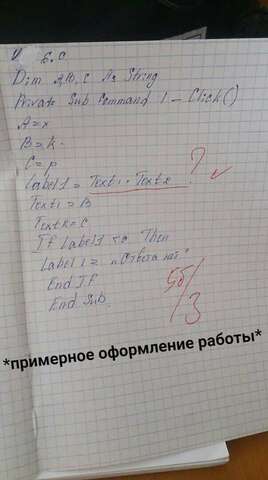 V 6.0
Dim A,B,C As String
Private Sub Command 1_Click()
A=x
B=k
C=p
Label1 = Text1 · Text2 ?
Text1 = B
Text2 = C
If Label1 < c Then
Label1 = „Ответа нет"
End If
End Sub
5б/3
*примерное оформление работы*